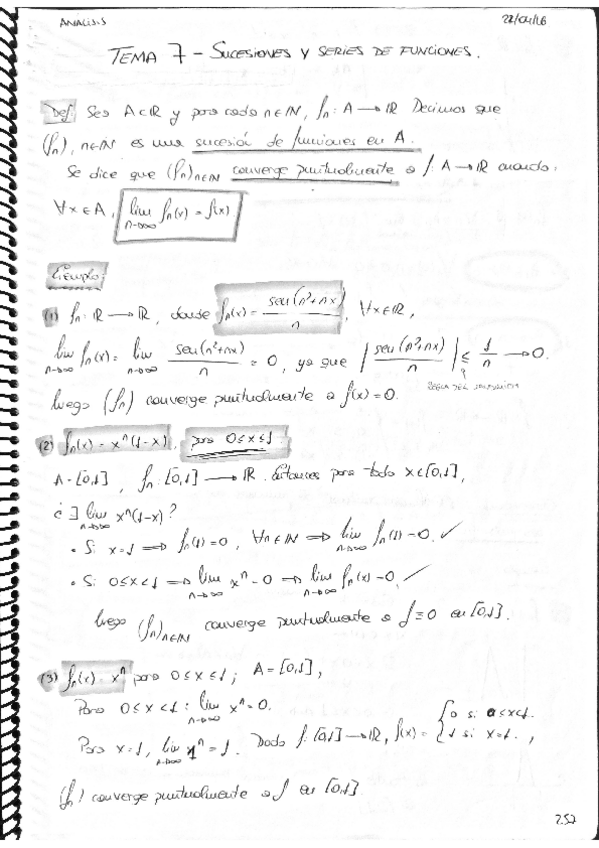 ANÁLISIS
22/04/16
TEMA 7 - SUCESIONES Y SERIES DE FUNCIONES.
Def: Sea A⊂ℝ y para cada n∈ℕ, fₙ: A → ℝ Decimos que
(fₙ), n∈ℕ es una sucesión de funciones en A.
Se dice que (fₙ)n∈ℕ converge puntualmente a f: A → ℝ cuando:
∀x ∈ A, lim n→∞ fₙ(x) = f(x)
Ejemplo:
(1) fₙ: ℝ → ℝ, donde fₙ(x) = sen(n²+nx)/n, ∀x∈ℝ,
lim n→∞ fₙ(x) = lim n→∞ sen(n²+nx)/n = 0, ya que |sen(n²+nx)/n| ≤ 1/n → 0.
REGLA DEL
luego (fₙ) converge puntualmente a f(x)=0.
(2) fₙ(x) = xⁿ(1-x), para 0≤x≤1.
A=[0,1], fₙ: [0,1] → ℝ. Entonces para todo x∈[0,1],
¿∃ lim n→∞ xⁿ(1-x)?
• Si x=1 ⟹ fₙ(1)=0, ∀n∈ℕ ⟹ lim n→∞ fₙ(1)=0. ✓
• Si 0≤x<1 ⟹ lim n→∞ xⁿ=0 ⟹ lim n→∞ fₙ(x)=0. ✓
luego (fₙ)n∈ℕ converge puntualmente a f≡0 en [0,1].
(3) fₙ(x) = xⁿ para 0≤x≤1; A=[0,1],
Para 0≤x<1: lim n→∞ xⁿ=0.
Para x=1, lim n→∞ 1ⁿ=1. Dada f: [0,1] → ℝ, f(x) = { 0 si 0≤x<1. 1 si x=1. ,
(fₙ) converge puntualmente a f en [0,1].
252